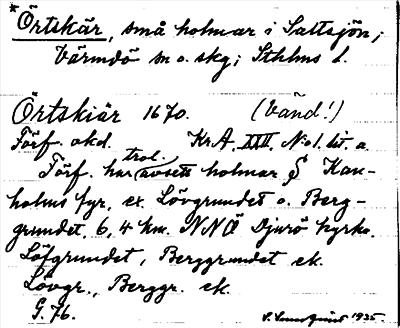 *Örtskär, små holmar i Saltsjön;
Värmdö sn o. skg; Sthlms l.
Örtskiär 1670. (Vänd!)
Förf. okd. Kr.A. XXII. No 1. lit. a.
Förf. har trol. avsett holmar S Kan-
holms fyr, ex. Lövgrundet o. Berg-
grundet, 6,4 km. NNÖ Djurö kyrka.
Löfgrundet, Berggrundet ek.
Lövgr., Berggr. ek.
G. 76. 1935.